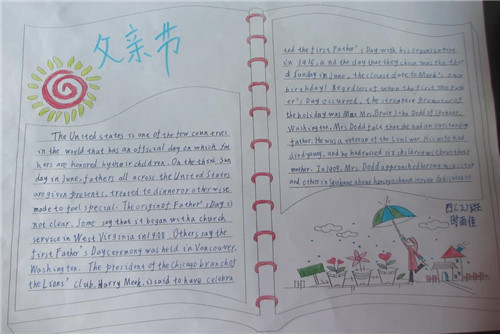 父亲节
The United States is one of the few countries
in the world that has an official day on which
fathers are honored by their children. On the third Sun
day in June, fathers all across the United States
are given presents, treated to dinner or otherwise
made to feel special. The origin of Father's Day is
not clear. Some say that it began with a church
service in West Virginia in 1908. Others say the
first Father's Day ceremony was held in Vancouver,
Washington. The president of the Chicago branch of
the Lions' club, Harry Meek, is said to have celebra
ted the first Father's Day with his organization
in 1915, and the day that they chose was the thir
d Sunday in June, the closest date to Meek's own
birthday! Regardless of when the first
Father's Day occurred, the strongest promoter of
the holiday was Mrs. Bruce John Dodd of Spokane,
Washington. Mrs. Dodd felt that she had an outstanding
father. He was a veteran of the Civil war. His wife had
died young, and he had raised six children without their
mother. In 1909, Mrs. Dodd approached her own minister
and others in Spokane about having a church service dedicated
班